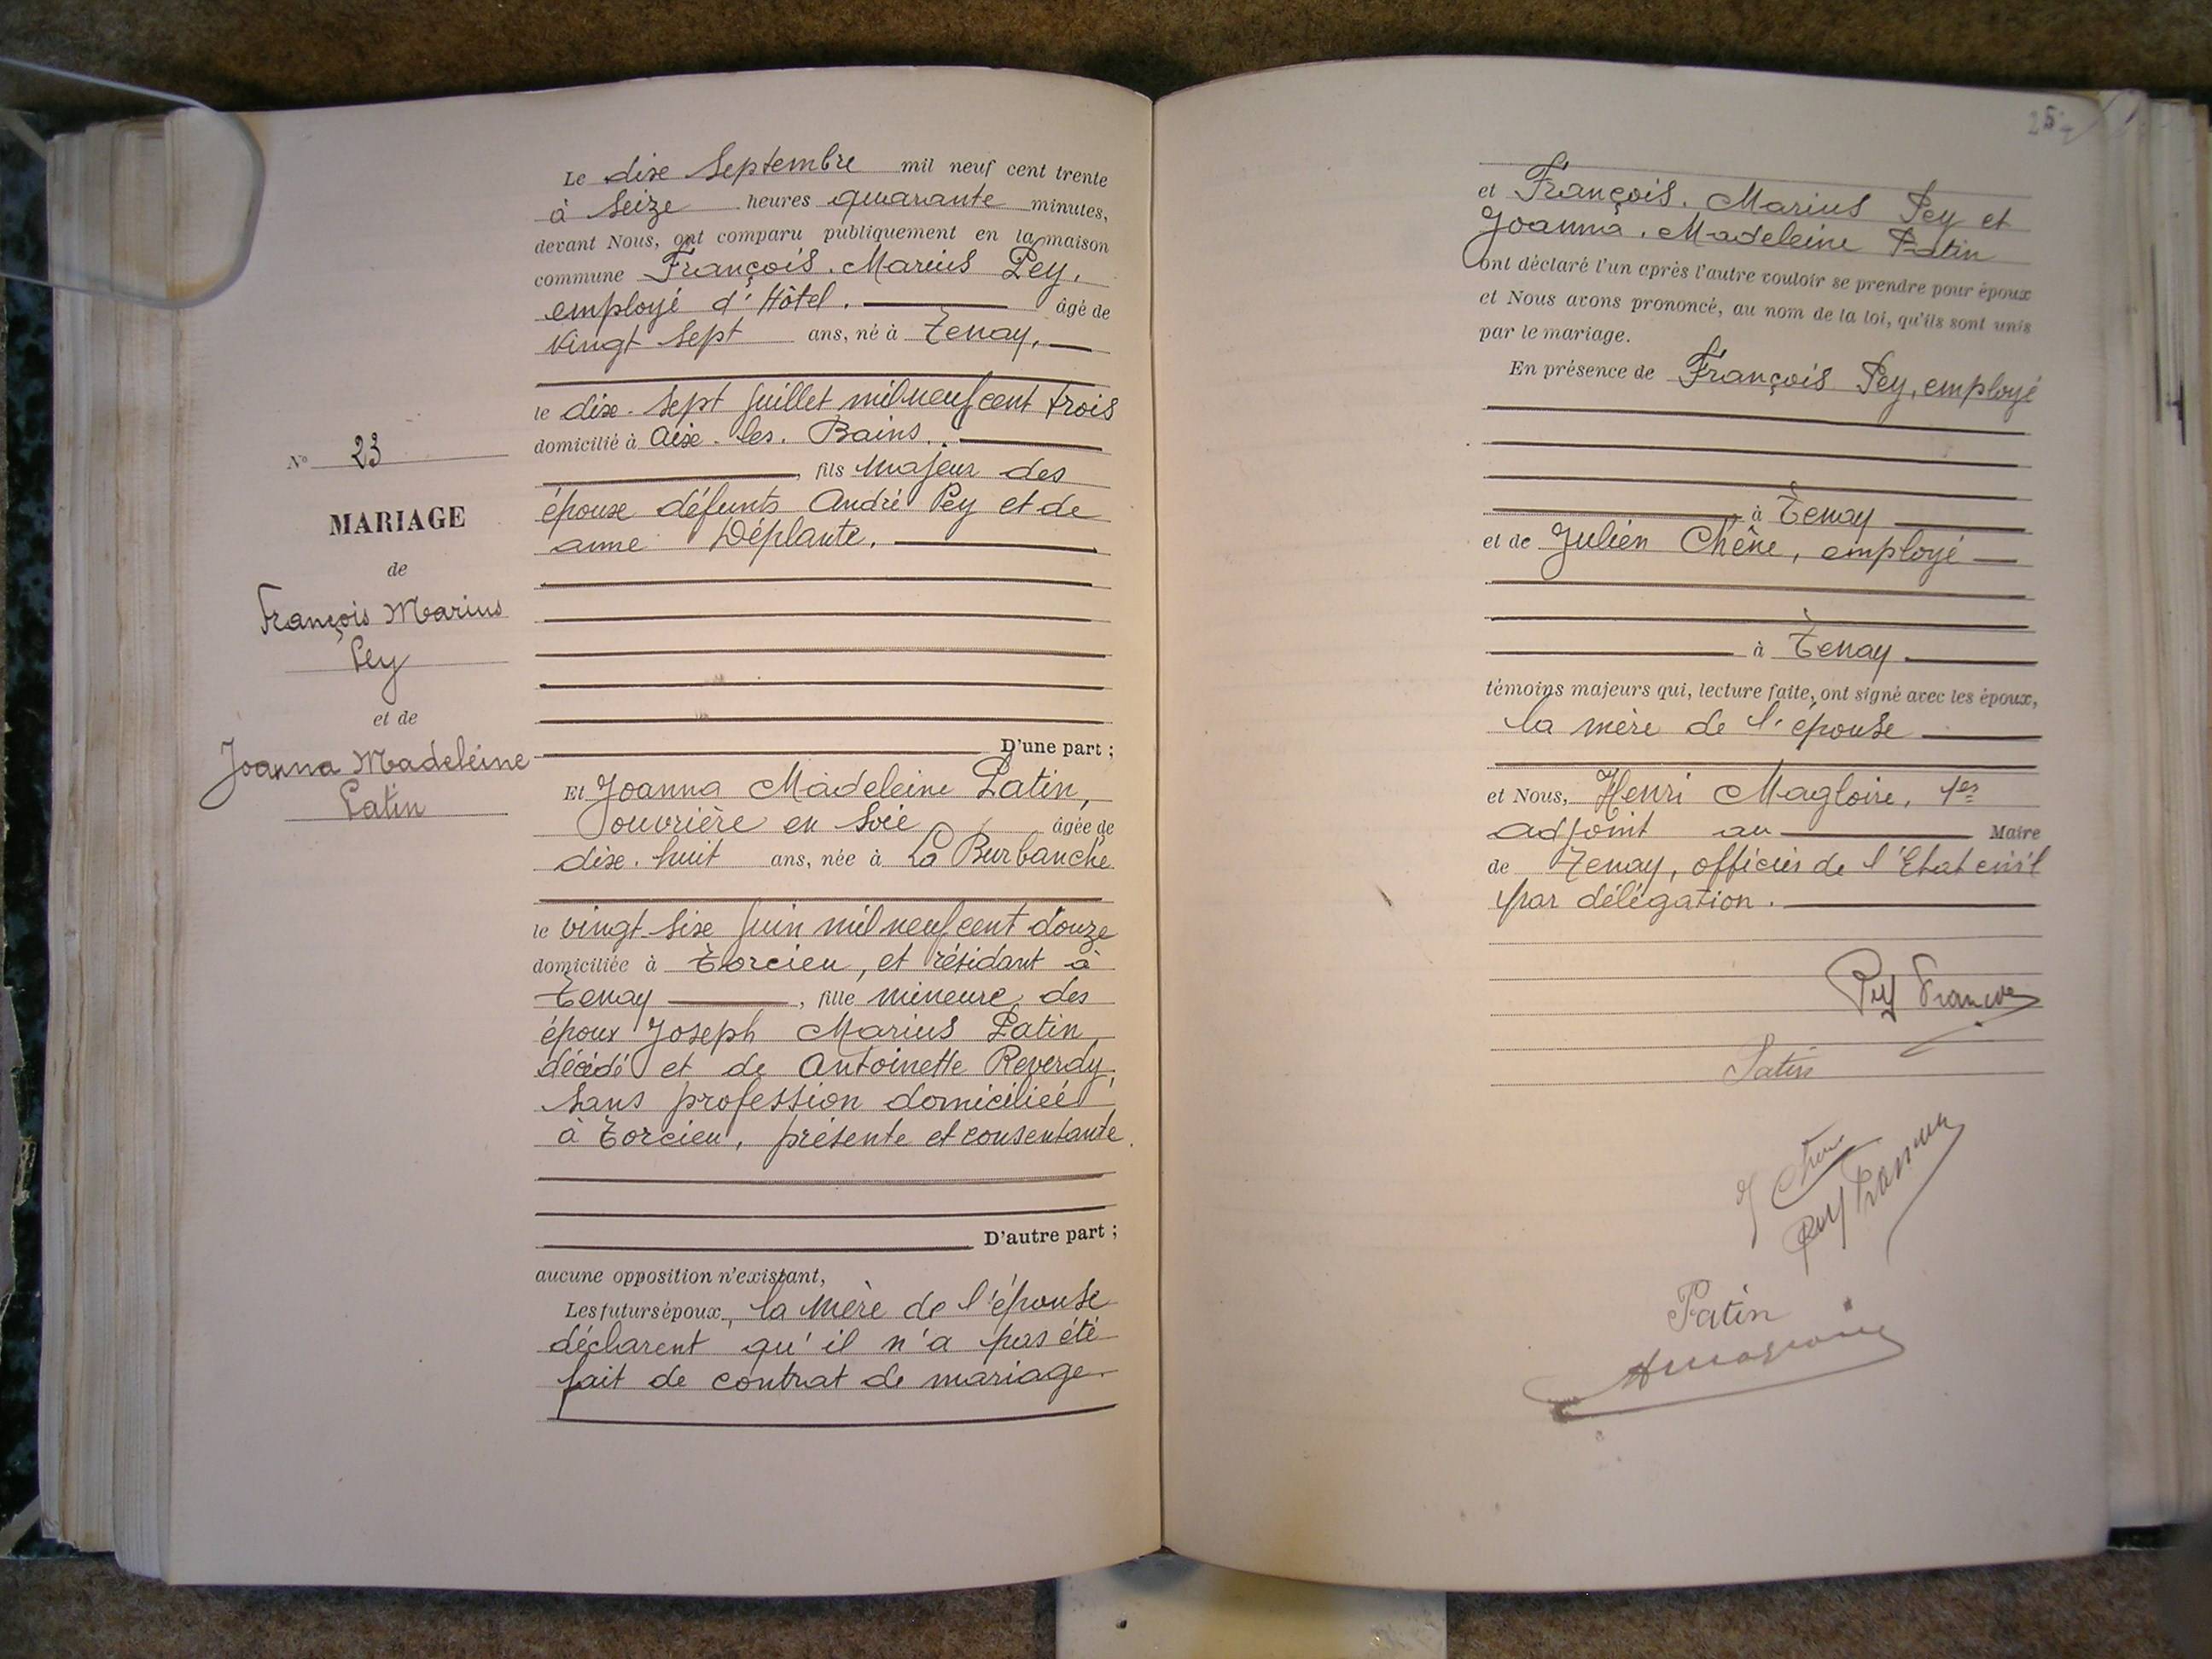 N° 23
MARIAGE
de
François Marius
Pey
et de
Joanna Madeleine
Patin
Le dix Septembre mil neuf cent trente
à Seize heures quarante minutes,
devant Nous, ont comparu publiquement en la maison
commune François. Marius Pey,
employé d'Hôtel. âgé de
Vingt Sept ans, né à Tenay,
le dix-sept Juillet mil neuf cent trois
domicilié à Aix-les-Bains.
, fils majeur des
époux défunts André Pey et de
anne Déplante.
D'une part ;
Et Joanna Madeleine Patin,
ouvrière en Soie âgée de
dix-huit ans, née à La Burbanche
le vingt-six Juin mil neuf cent douze
domiciliée à Torcieu, et résidant à
Tenay , fille mineure des
époux Joseph Marius Patin
décédé et de Antoinette Reverdy,
Sans profession domiciliée
à Torcieu, présente et consentante.
D'autre part ;
aucune opposition n'existant,
Les futurs époux, la mère de l'épouse
déclarent qu'il n'a pas été
fait de contrat de mariage.
et François. Marius Pey et
Joanna. Madeleine Patin
ont déclaré l'un après l'autre vouloir se prendre pour époux
et Nous avons prononcé, au nom de la loi, qu'ils sont unis
par le mariage.
En présence de François Pey, employé
à Tenay
et de Julien Chêne, employé
à Tenay
témoins majeurs qui, lecture faite, ont signé avec les époux,
la mère de l'épouse
et Nous, Henri Magloire, 1er
adjoint au Maire
de Tenay, officier de l'Etat civil
par délégation.
Pey
Patin
J Chêne
Pey
Patin